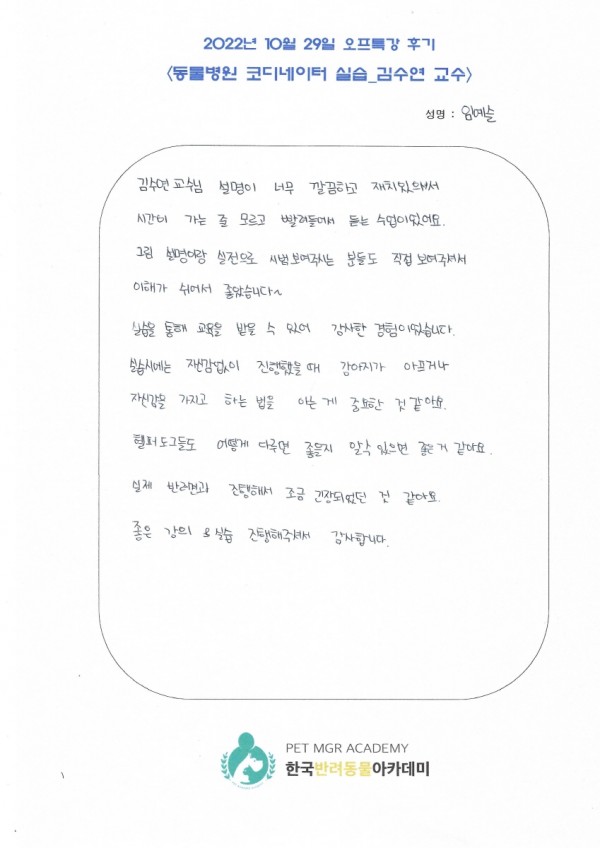 2022년 10월 29일 오프특강 후기
<동물병원 코디네이터 실습_김수연 교수>
성명 : 임예슬
김수연 교수님 설명이 너무 깔끔하고 재치있으셔서
시간이 가는 줄 모르고 빨려들어서 듣는 수업이었어요.
그림 설명이랑 실전으로 시범보여주시는 분들도 직접 보여주셔서
이해가 쉬어서 좋았습니다~
실습을 통해 교육을 받을 수 있어 감사한 경험이었습니다.
실습시에는 자신감없이 진행했을 때 강아지가 아프거나
자신감을 가지고 하는 법을 아는 게 중요한 것 같아요.
헬퍼도그들도 어떻게 다루면 좋을지 알수 있으면 좋은거 같아요.
실제 반려견과 진행해서 조금 긴장되었던 것 같아요.
좋은 강의 & 실습 진행해주셔서 감사합니다.
PET MGR ACADEMY
한국반려동물아카데미